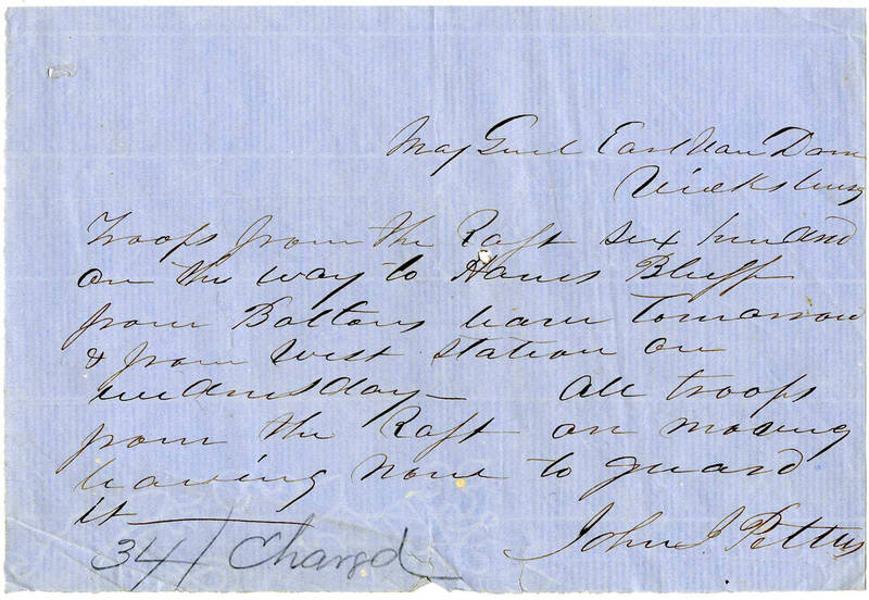 Maj Genl Earl Van Dorn
Vicksburg
Troops from the Raft six hundred
on the way to Haines Bluff
from Boltons leave tomorrow
& from West Station on
wednesday — All troops
from the Raft are moving
leaving none to guard
it
John J Pettus
34/ Chargd